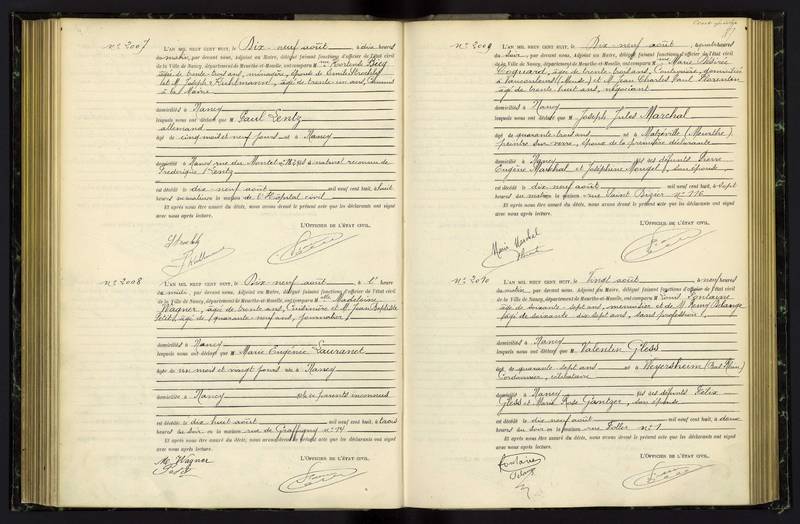 N° 2007
L'AN MIL NEUF CENT HUIT, le Dix-neuf août, à dix heures
du matin, par devant nous, Adjoint au Maire, délégué faisant fonctions d'officier de l'état civil
de la Ville de Nancy, département de Meurthe-et-Moselle, ont comparu M
âgée de trente-trois ans, ménagère, épouse de Emile Strochly
et M. Joseph Kuhlmann, âgé de trente-un ans,
à la Mairie
domiciliés à Nancy
lesquels nous ont déclaré que M. Paul Lentz
allemand
âgé de cinq mois et neuf jours né à Nancy
domicilié à Nancy rue du Montet fils naturel reconnu de
Frédérique Lentz
est décédé le dix-neuf août mil neuf cent huit, à huit
heures du matin en la maison de l'Hôpital civil
Et après nous être assuré du décès, nous avons dressé le présent acte que les déclarants ont signé
avec nous après lecture.
L'OFFICIER DE L'ÉTAT CIVIL,
N° 2008
L'AN MIL NEUF CENT HUIT, le Dix-neuf août, à heure
par devant nous, Adjoint au Maire, délégué faisant fonctions d'officier de l'état civil
de la Ville de Nancy, département de Meurthe-et-Moselle, ont comparu Mlle Madeleine
Wagner, âgée de trente ans, Cuisinière et M. Jean Baptiste
Petit, âgé de quarante-neuf ans, journalier
domiciliés à Nancy
lesquels nous ont déclaré que M. Marie Eugénie Lauranet
âgée de un mois et vingt jours née à Nancy
domiciliée à Nancy fille de parents inconnus
est décédé le dix-huit août mil neuf cent huit, à trois
heures du soir en la maison rue de Graffigny n° 14
Et après nous être assuré du décès, nous avons dressé le présent acte que les déclarants ont signé
avec nous après lecture.
L'OFFICIER DE L'ÉTAT CIVIL,
M. Wagner
Petit
87
N° 2009
L'AN MIL NEUF CENT HUIT, le Dix-neuf août, à quatre heures
du soir, par devant nous, Adjoint au Maire, délégué faisant fonctions d'officier de l'état civil
de la Ville de Nancy, département de Meurthe-et-Moselle, ont comparu Mme Marie Désirée
Coquard, âgée de trente-trois ans, Couturière, domiciliée
à Vaucouleurs (Meuse) et M. Jean Charles Paul Florentin
âgé de trente-huit ans, négociant
domicilié à Nancy
lesquels nous ont déclaré que M. Joseph Jules Marchal
âgé de quarante-trois ans né à Malzéville (Meurthe)
peintre sur verre, époux de la première déclarante
domicilié à Nancy fils des défunts Pierre
Eugène Marchal et Joséphine Mougel, son épouse
est décédé le dix-neuf août mil neuf cent huit, à sept
heures du matin en la maison rue Saint Dizier n° 116
Et après nous être assuré du décès, nous avons dressé le présent acte que les déclarants ont signé
avec nous après lecture.
L'OFFICIER DE L'ÉTAT CIVIL,
Marie Marchal
N° 2010
L'AN MIL NEUF CENT HUIT, le Vingt août, à neuf heures
du matin, par devant nous, Adjoint au Maire, délégué faisant fonctions d'officier de l'état civil
de la Ville de Nancy, département de Meurthe-et-Moselle, ont comparu M. Louis Fontaine
âgé de soixante-sept ans, menuisier et M. Remy Pelange
âgé de soixante-dix-sept ans, sans profession
domiciliés à Nancy
lesquels nous ont déclaré que M. Valentin Gless
âgé de quarante-sept ans né à Weyersheim (Bas-Rhin)
Cordonnier, célibataire
domicilié à Nancy fils des défunts Félix
Gless et Marie Rose Gantzer, son épouse
est décédé le dix-neuf août mil neuf cent huit, à
heures du soir en la maison rue Foller n° 1
Et après nous être assuré du décès, nous avons dressé le présent acte que les déclarants ont signé
avec nous après lecture.
L'OFFICIER DE L'ÉTAT CIVIL,
Fontaine